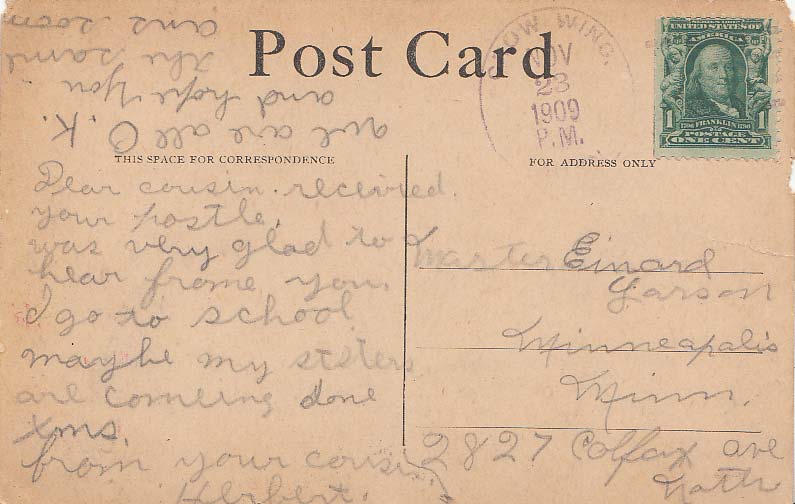 Post Card
CROW WING,
NOV
23
1909
P.M.
SERIES 1902
UNITED STATES OF
AMERICA
1
1706 FRANKLIN 1790
1
POSTAGE
ONE CENT
THIS SPACE FOR CORRESPONDENCE
FOR ADDRESS ONLY
Dear cousin. received
your postle.
was very glad to
hear frome you.
I go to school
maybe my sisters
are comeing done
xms.
from your cousin
Herbert.
and are all O.K.
and hope you
the same
ans soon
Master Einard
Larson
Minneapolis
Minn.
2827 Colfax ave
North